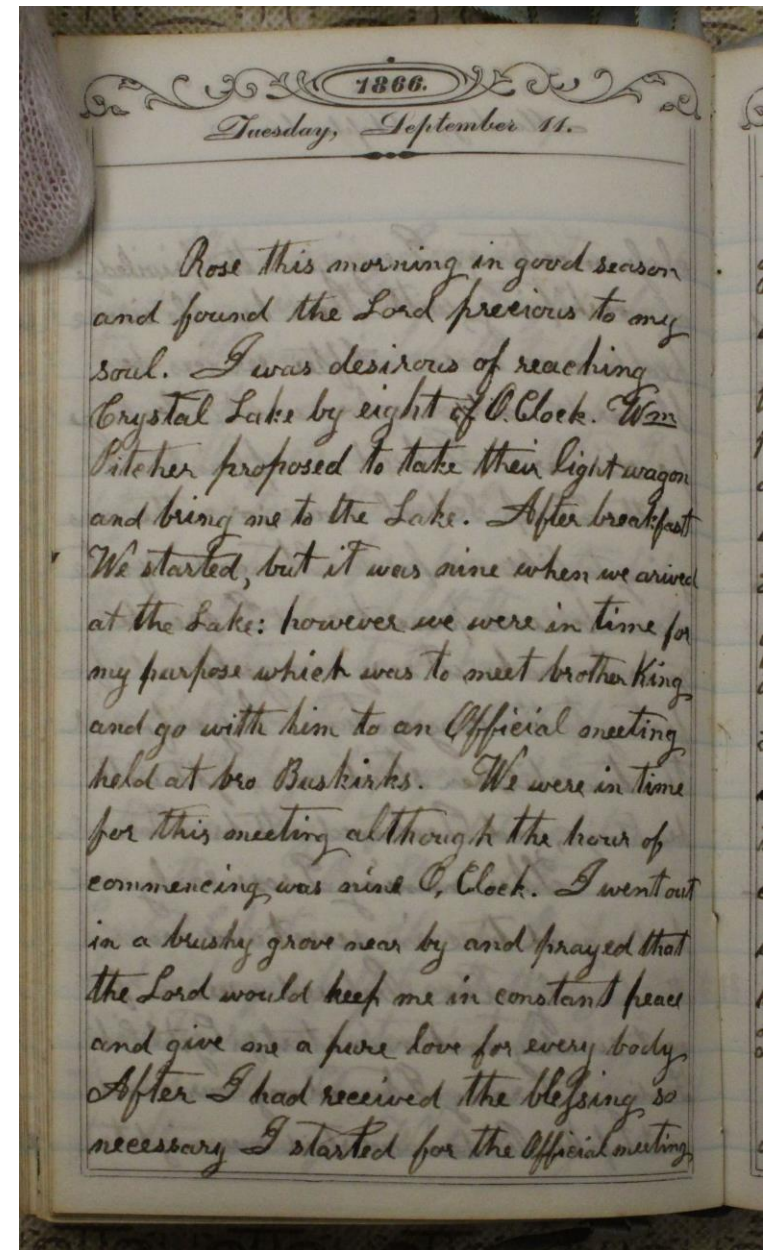 1866.
Tuesday, September 11.
Rose this morning in good season
and found the Lord precious to my
soul. I was desirous of reaching
Crystal Lake by eight of O. Clock. Wm
Pitcher proposed to take their light wagon
and bring me to the Lake. After breakfast
We started, but it was nine when we arived
at the Lake: however we were in time for
my purpose which was to meet brother King
and go with him to an Official meeting
held at bro Buskirks. We were in time
for this meeting although the hour of
commencing was nine O, Clock. I went out
in a brushy grove near by and prayed that
the Lord would keep me in constant peace
and give me a pure love for every body
After I had received the blessing so
necessary I started for the Official meeting